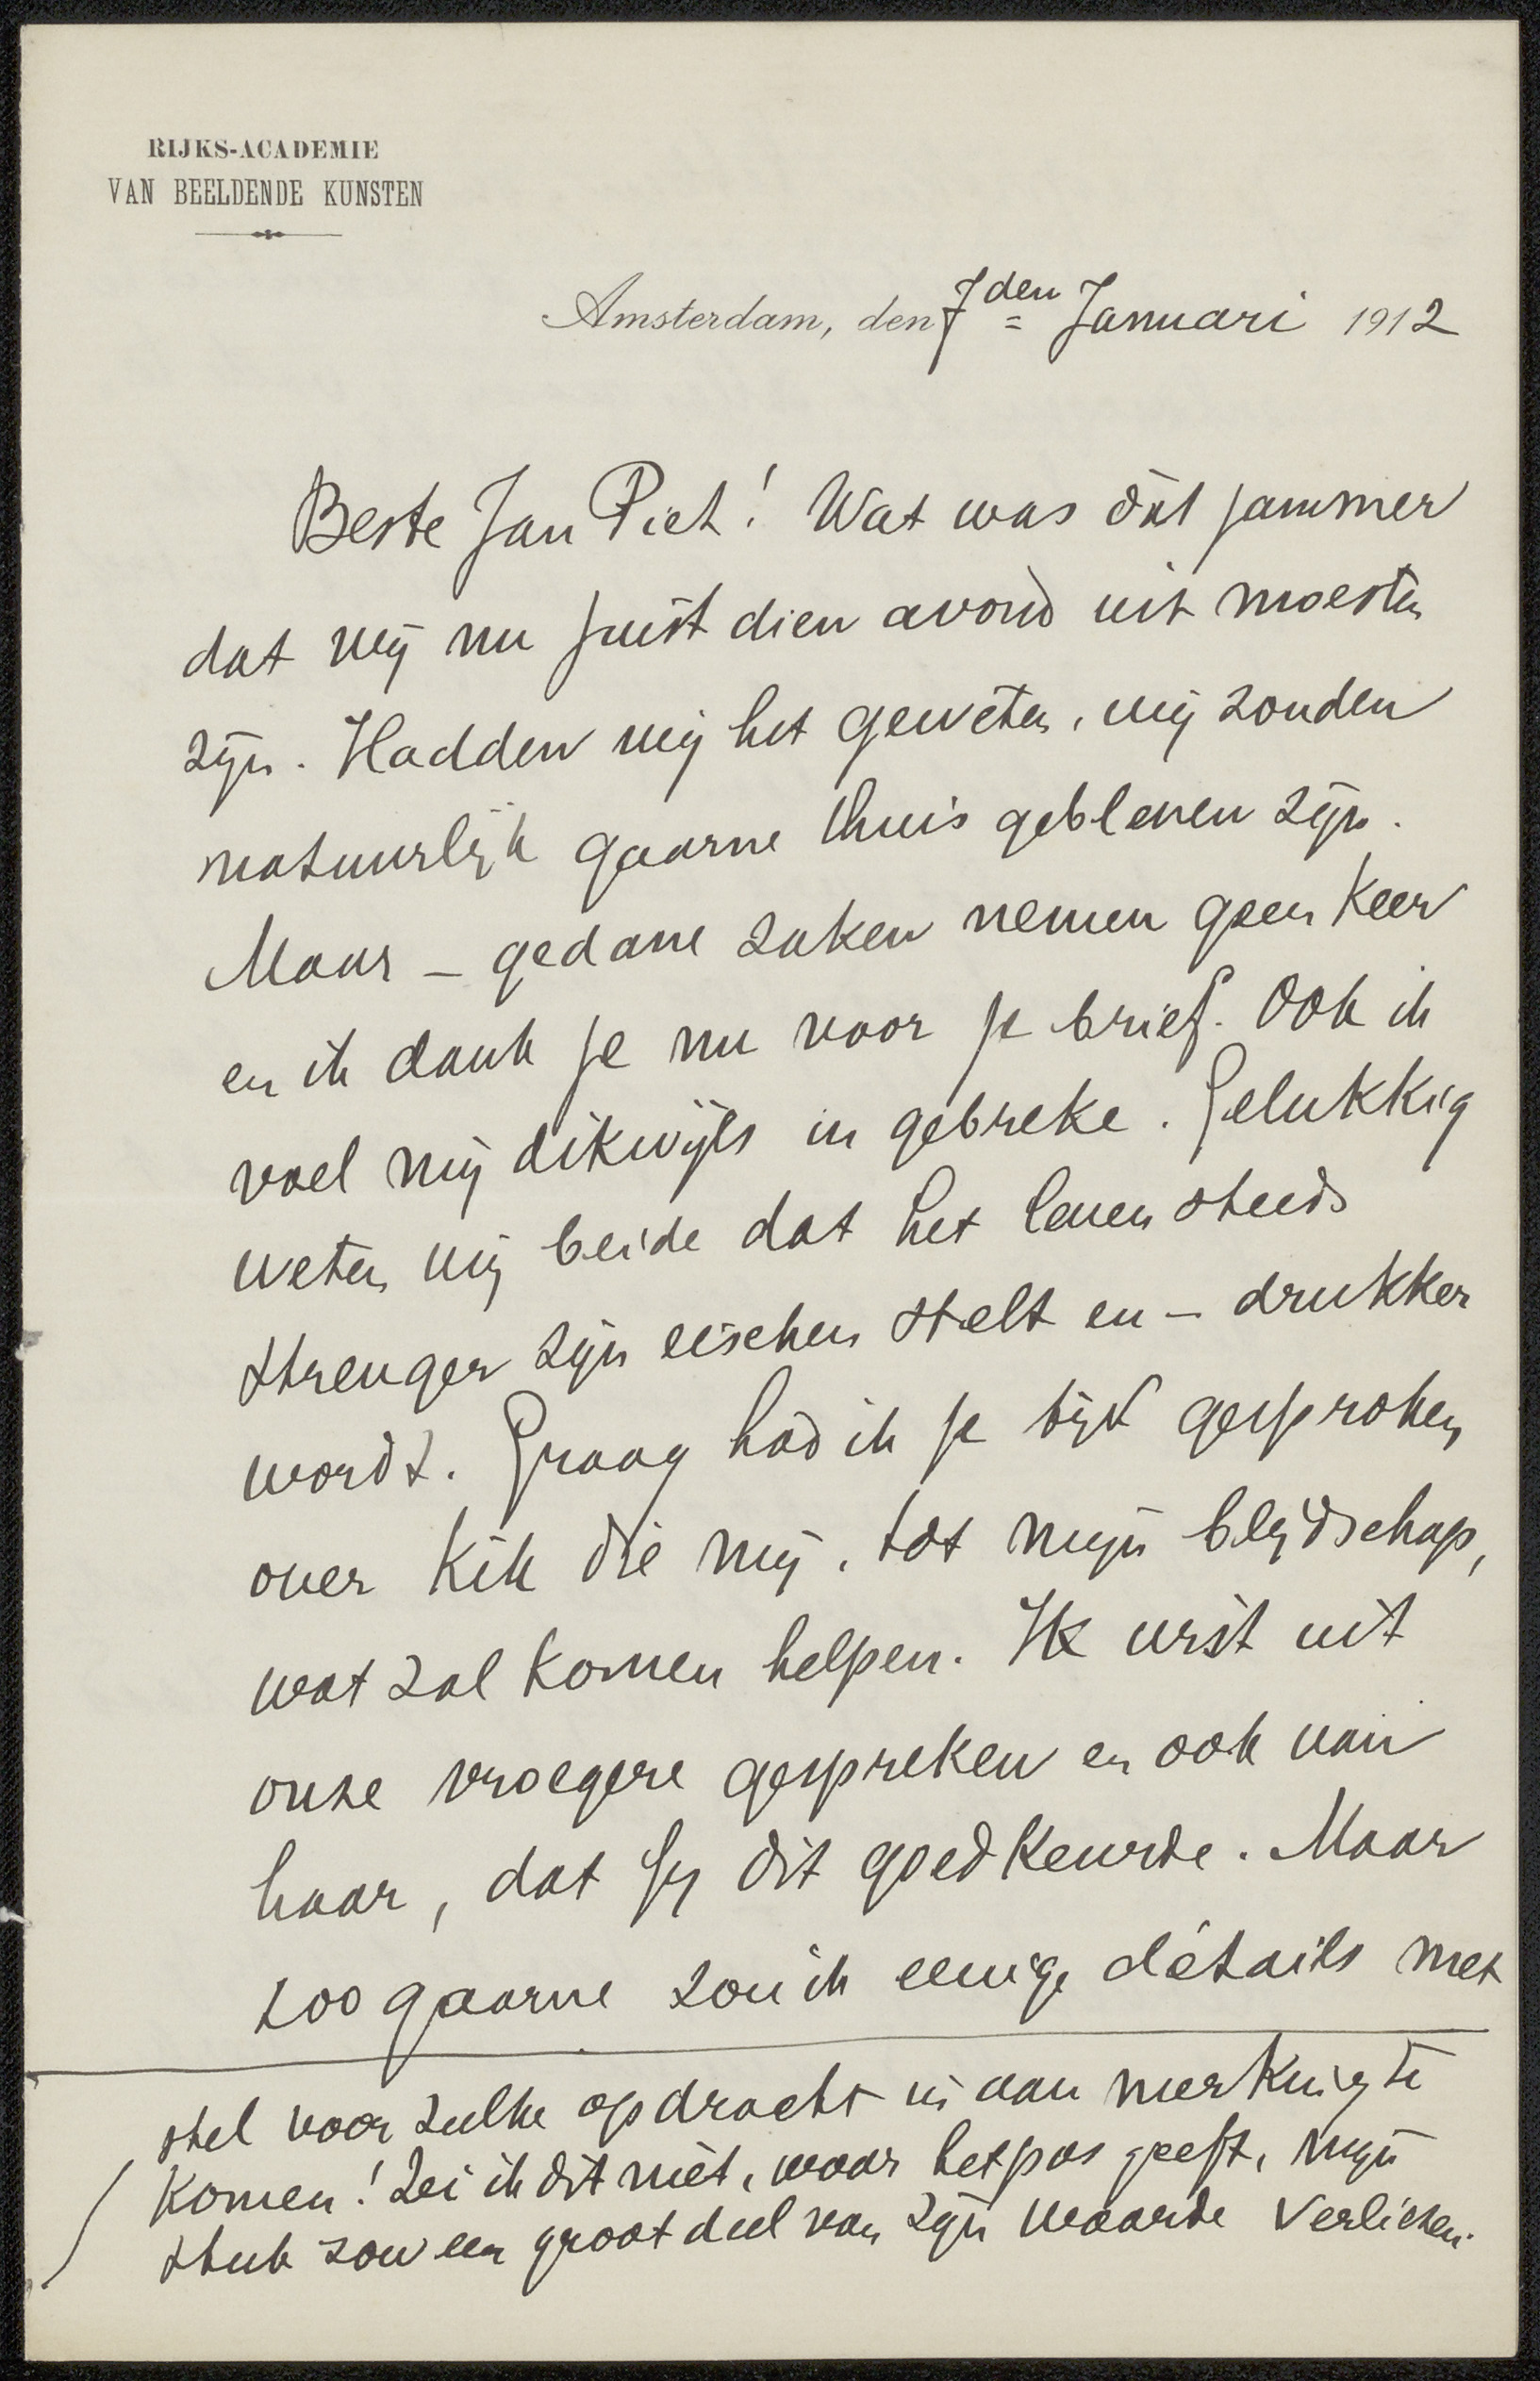 RIJKS-ACADEMIE
VAN BEELDENDE KUNSTEN
Amsterdam, den 7den Januari 1912
Beste Jan Piet! Wat was dàt jammer
dat wij nu juist dien avond uit moesten
zijn. Hadden wij het geweten, wij zouden
natuurlijk gaarne thuis gebleven zijn.
Maar – gedane zaken nemen geen keer
en ik dank je nu voor je brief. Ook ik
voel mij dikwijls in gebreke. Gelukkig
weten wij beide dat het leven steeds
strenger zijn eischen stelt en – drukker
wordt. Graag had ik je bijv gesproken
over Kik die mij, tot mijn blijdschap,
wat zal komen helpen. Ik wist uit
onze vroegere gesprekken en ook van
haar, dat jij dit goedkeurde. Maar
zoo gaarne zou ik eenige détails met
stel voor zulke opdracht in aanmerking te
komen! Zei ik dit niet, waar het pas geeft, mijn
stuk zou een groot deel van zijn waarde verliezen.